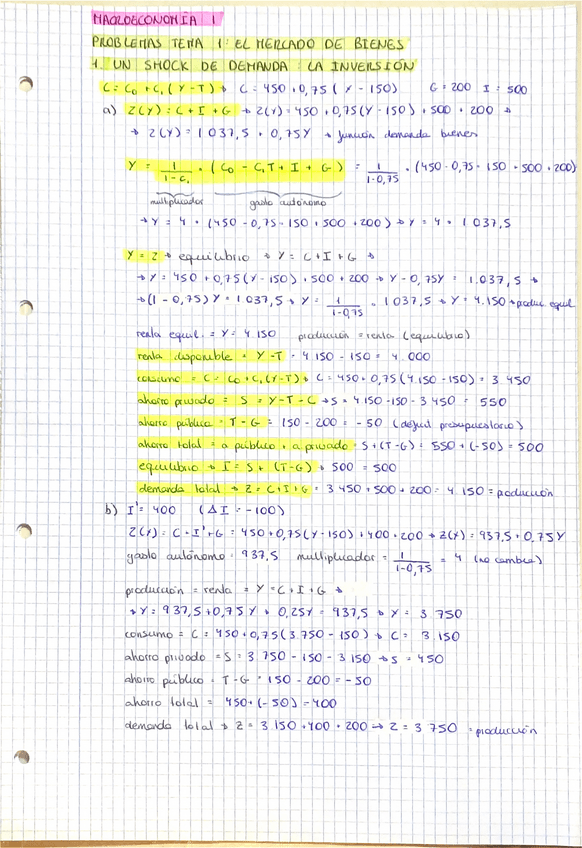 MACROECONOMÍA 1
PROBLEMAS TEMA 1: EL MERCADO DE BIENES
1. UN SHOCK DE DEMANDA: LA INVERSIÓN
C = C₀ + C₁ (Y - T) → C = 450 + 0,75 (Y - 150) G = 200 I = 500
a) Z(Y) = C + I + G → Z(Y) = 450 + 0,75 (Y - 150) + 500 + 200 →
→ Z(Y) = 1037,5 + 0,75Y → función demanda bienes
Y = 1/(1-C₁) · (C₀ - C₁T + I + G) = 1/(1-0,75) · (450 - 0,75 · 150 + 500 + 200)
multiplicador gasto autónomo
→ Y = 4 · (450 - 0,75 · 150 + 500 + 200) → Y = 4 · 1037,5
Y = Z → equilibrio → Y = C + I + G →
→ Y = 450 + 0,75 (Y - 150) + 500 + 200 → Y - 0,75Y = 1.037,5 →
→ (1 - 0,75) Y = 1037,5 → Y = 1/(1-0,75) · 1037,5 → Y = 4.150 → produc. equil.
renta equil. = Y = 4.150 producción = renta (equilibrio)
renta disponible = Y - T = 4.150 - 150 = 4.000
consumo = C = C₀ + C₁ (Y - T) → C = 450 + 0,75 (4.150 - 150) = 3.450
ahorro privado = S = Y - T - C → S = 4.150 - 150 - 3.450 = 550
ahorro público = T - G = 150 - 200 = -50 (déficit presupuestario)
ahorro total = a. público + a. privado = S + (T - G) = 550 + (-50) = 500
equilibrio → I = S + (T - G) → 500 = 500
demanda total → Z = C + I + G = 3.450 + 500 + 200 = 4.150 = producción
b) I' = 400 (ΔI = -100)
Z(Y) = C + I' + G = 450 + 0,75 (Y - 150) + 400 + 200 → Z(Y) = 937,5 + 0,75Y
gasto autónomo = 937,5 multiplicador = 1/(1-0,75) = 4 (no cambia)
producción = renta = Y = C + I + G →
→ Y = 937,5 + 0,75Y → 0,25Y = 937,5 → Y = 3.750
consumo = C = 450 + 0,75 (3.750 - 150) → C = 3.150
ahorro privado = S = 3.750 - 150 - 3.150 → S = 450
ahorro público = T - G = 150 - 200 = -50
ahorro total = 450 + (-50) = 400
demanda total → Z = 3.150 + 400 + 200 → Z = 3.750 = producción